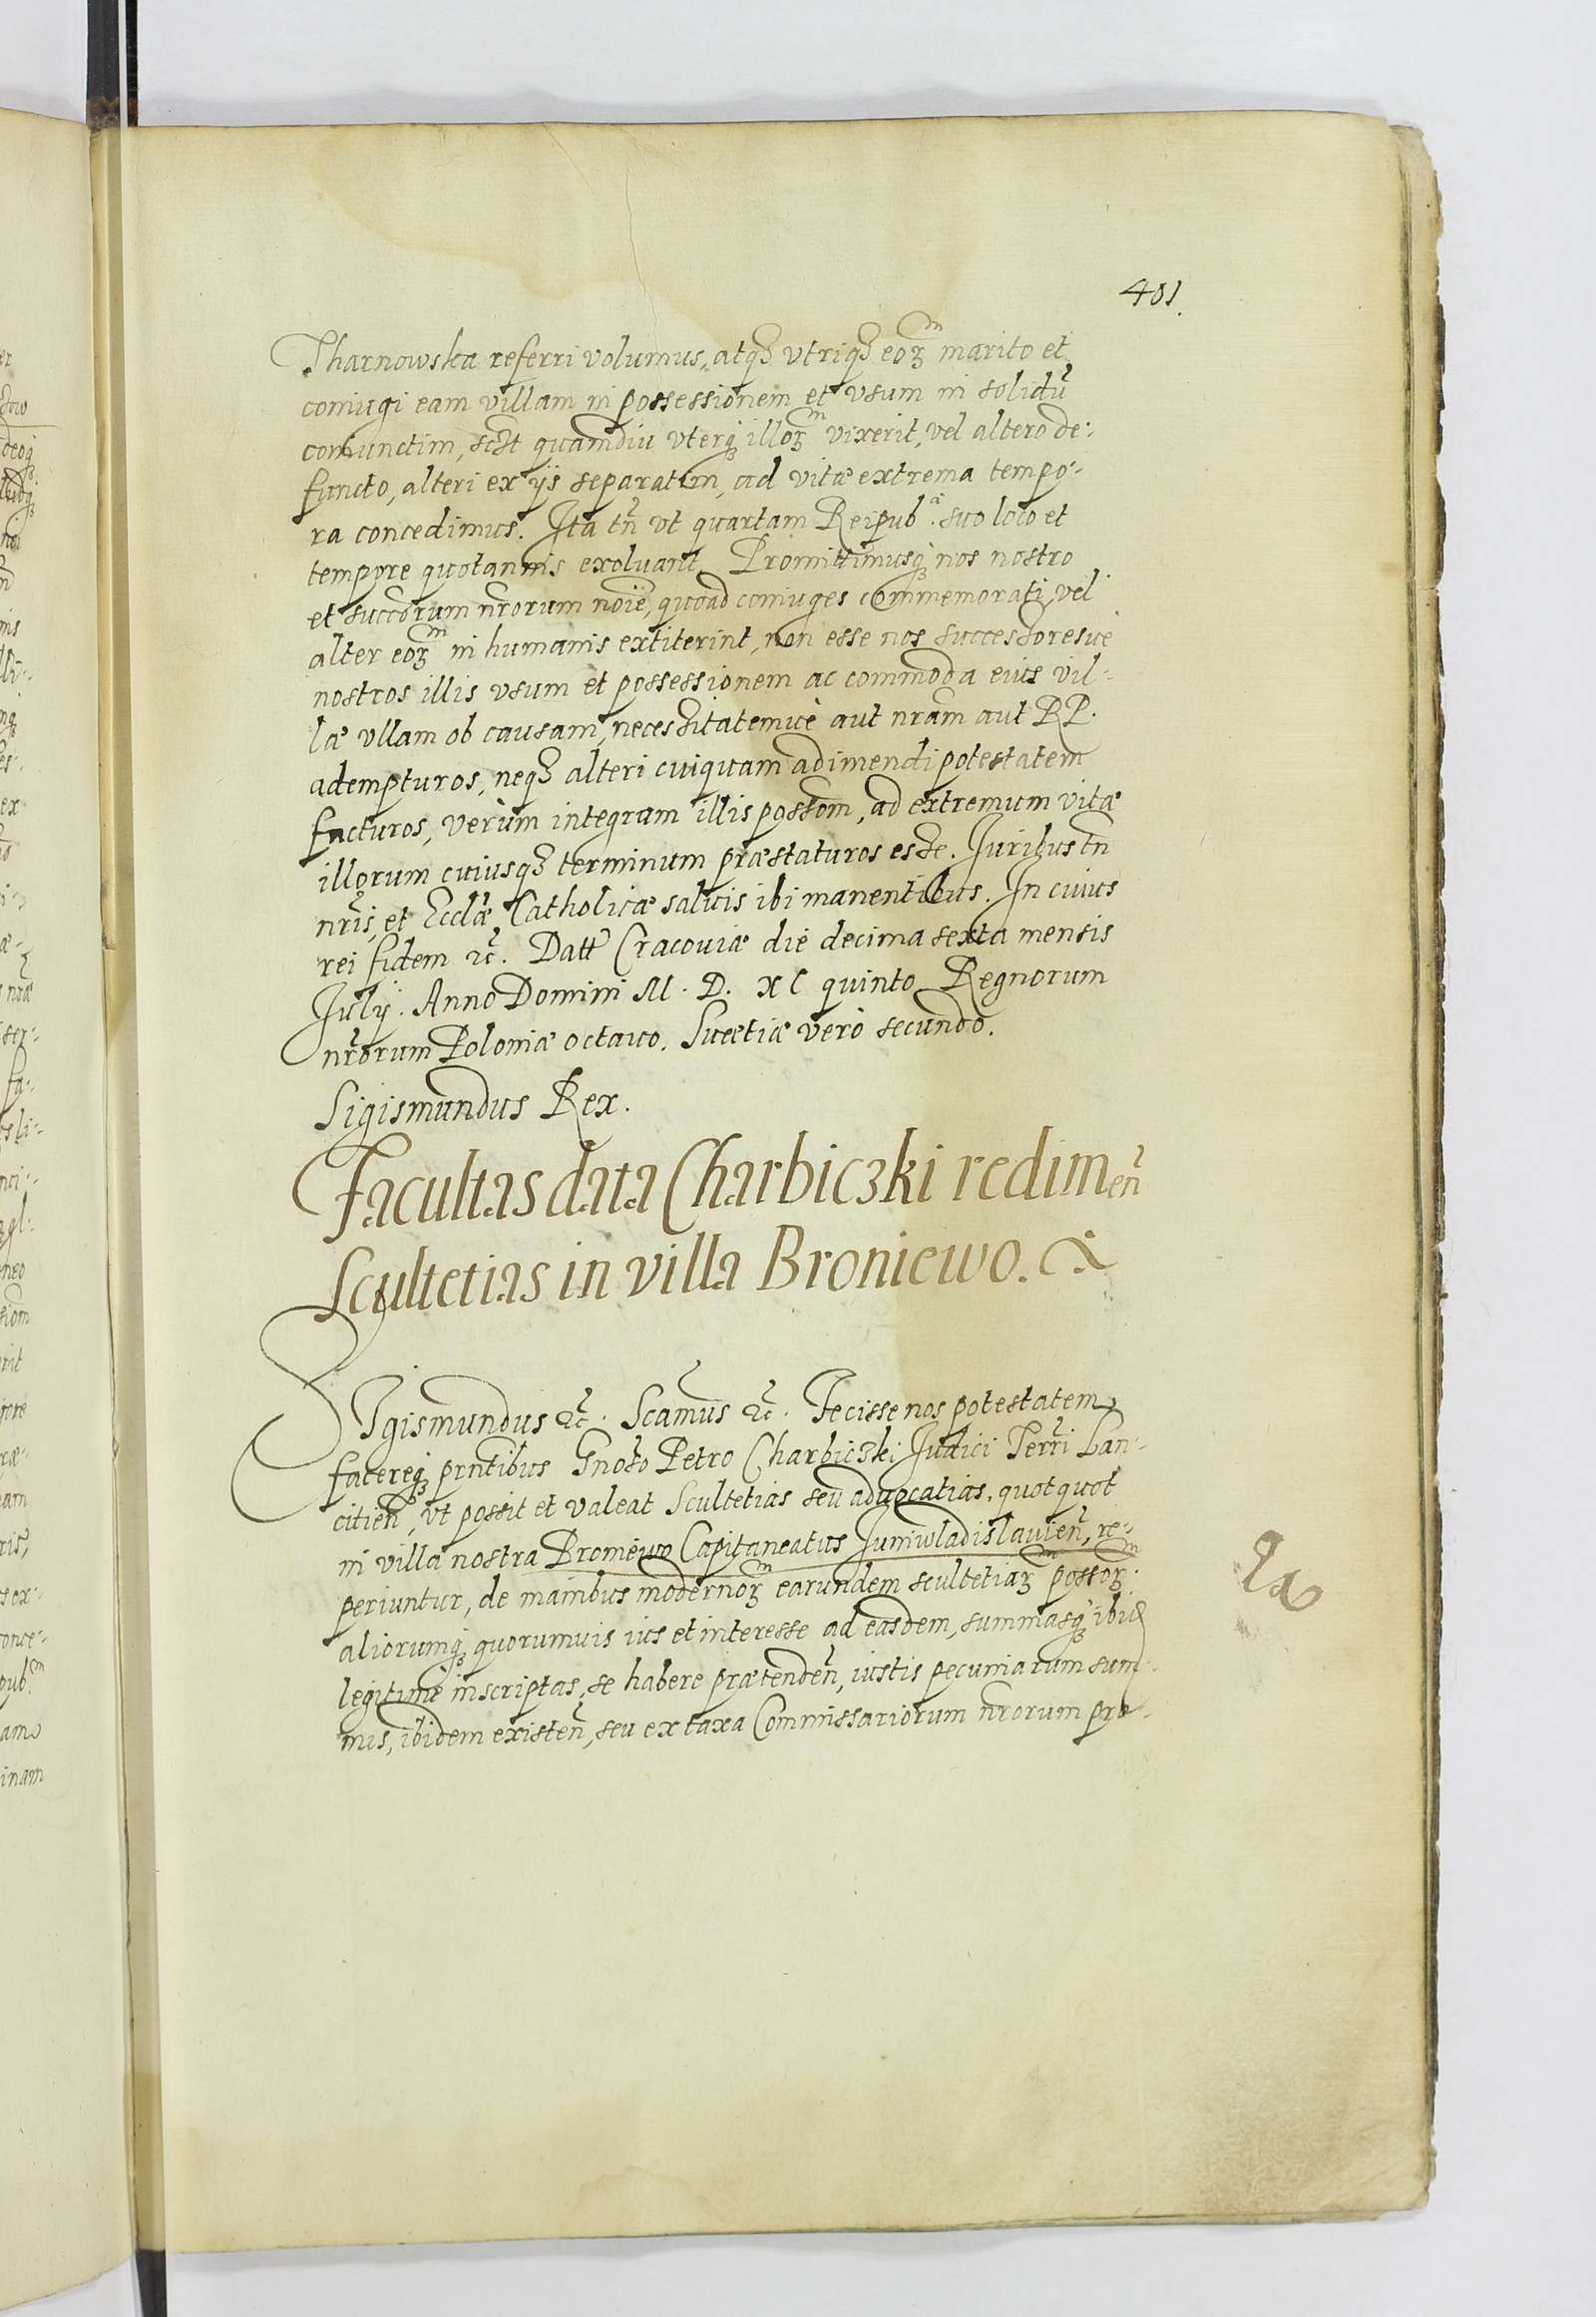 401.
Tharnowska referri volumus, atqȝ vtriqȝ eoꝝm marito et
coniugi eam villam in possessionem et vsum in solidũ
coniunctim, sclt quamdiu vterqȝ illoꝝm vixerit, vel altero de-
functo, alteri ex ijs separatim, ad vitæ extrema tempo-
ra concedimus. Ita tñ vt quartam Reipub.æ suo loco et
tempore quotannis exoluant. Promittimusqȝ nos nostro
et succorum nrorum noie, quoad coniuges commemorati, vel
alter eoꝝm in humanis extiterint, non esse nos successoresue
nostros illis vsum et possessionem ac commoda eius vil-
læ vllam ob causam, necessitatemuè aut nram aut RP.
adempturos, neqȝ alteri cuiquam adimendi potestatem
facturos, verùm integram illis possom, ad extremum vitæ
illorum cuiusqȝ terminum præstaturos esse. Iuribus tñ
nris, et Ecclæ Catholicæ saluis ibi manentibus. In cuius
rei fidem ꝛc̃. Datt Cracouiæ die decima sexta mensis
Iulij. Anno Domini M. D. XC quinto Regnorum
nrorum Poloniæ octauo. Suetiæ verò secundo.
Sigismundus Rex.
Facultas data Charbiczki redimeñ
Scultetias in villa Broniewo. &
SIgismundus ꝛc̃. Scamus ꝛc̃. Fecisse nos potestatem
facereqȝ prntibus Gnoso Petro Charbiczki Iudici Terri Lan-
citieñ, vt possit et valeat Scultetias seu aduocatias, quotquot
in villa nostra Broniewo Capitaneatus Iuniwladislauieñ, re-
periuntur, de manibus modernoꝝm earundem scultetiaꝝm possoꝝm
aliorumqȝ quorumuis ius et interesse ad easdem, summasqȝ ibid
legitimè inscriptas, se habere prætendeñ, iustis pecuniarum sum-
mis, ibidem existeñ, seu ex taxa Commissariorum nrorum pro-